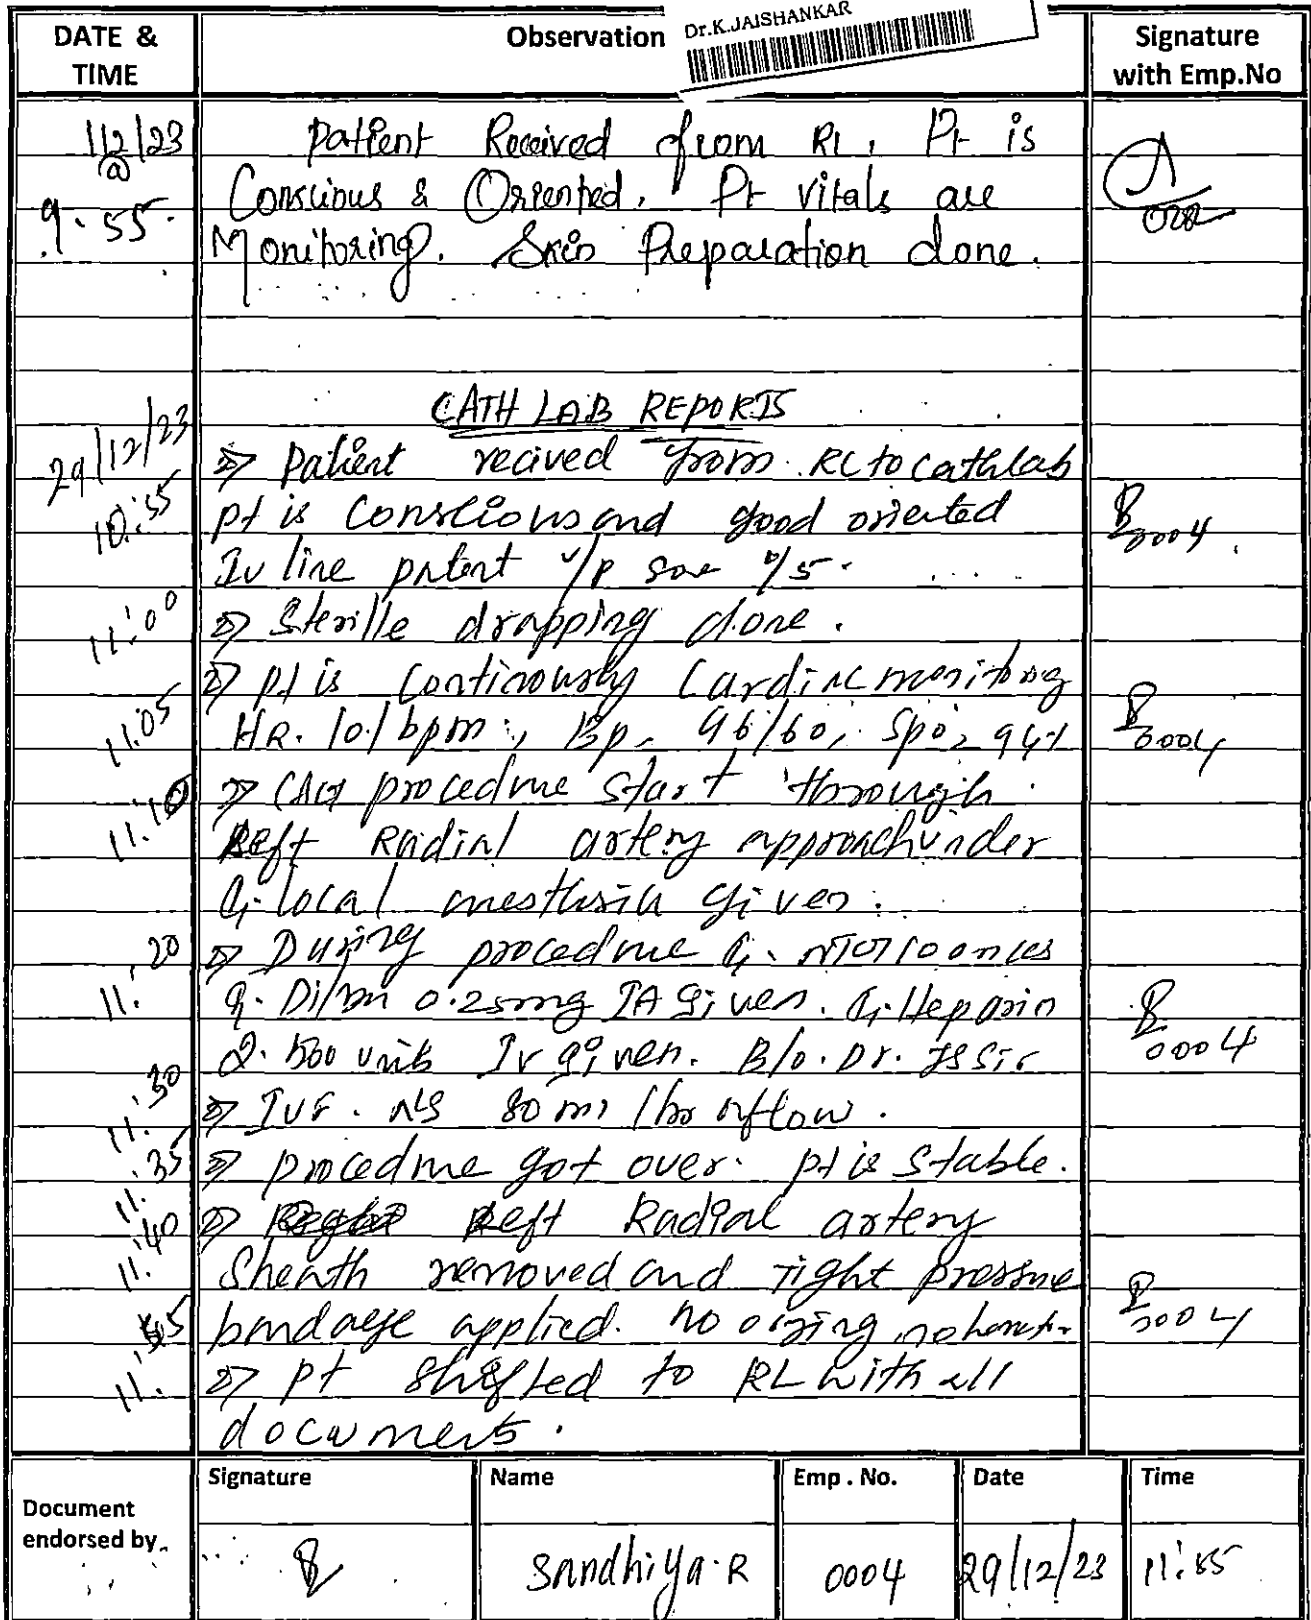 Dr.K.JAISHANKAR
DATE & TIME Observation Signature with Emp.No
12/23 Patient Received from RL. Pt is
@ Conscious & Oriented. Pt vitals are
9.55 Monitoring. Skin Preparation done.
CATH LAB REPORTS
29/12/23 Patient recived from RL to cathlab
10:55 pt is Conscious and good oriented 0004
Iv line patent
11:00 Sterille drapping done.
pt is continously Cardiac monitoring
11:05 HR. 101 bpm, Bp- 96/60, Spo2 94% 0004
11:10 CAG procedure start through
Left Radial artery approach under
local anesthesia given.
11.20 During procedure
0.25mg IA given. Heparin
units Iv given. B/o. Dr. JS Sir 0004
11:30 IVF. NS 80 ml/hr onflow.
11:35 procedure got over. pt is stable.
11:40 Left Radial artery
Sheath removed and tight pressure
bandage applied. no oozing 0004
11. pt shifted to RL with all
documents.
Document endorsed by Signature Name Emp. No. Date Time
Sandhiya.R 0004 29/12/23 11:55